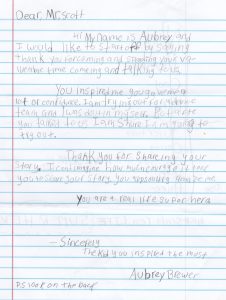 Dear, Mr. scott
Hi My name is Aubrey and
I would like to start off by saying
thank you for coming and spending your va
time coming and talking to us.
You inspired me you gave me a
lot of confidence. I am trying out for
team and I was in my self. But
you talked to us. I am Share I am going to
try out.
Thank you for Sharing your
story. I can't imagine how much courage it
you to Share your story. You me.
You are a real life super hero
- Sincerely
The kid you inspired the most
Aubrey Brewer
P.S. look on the back